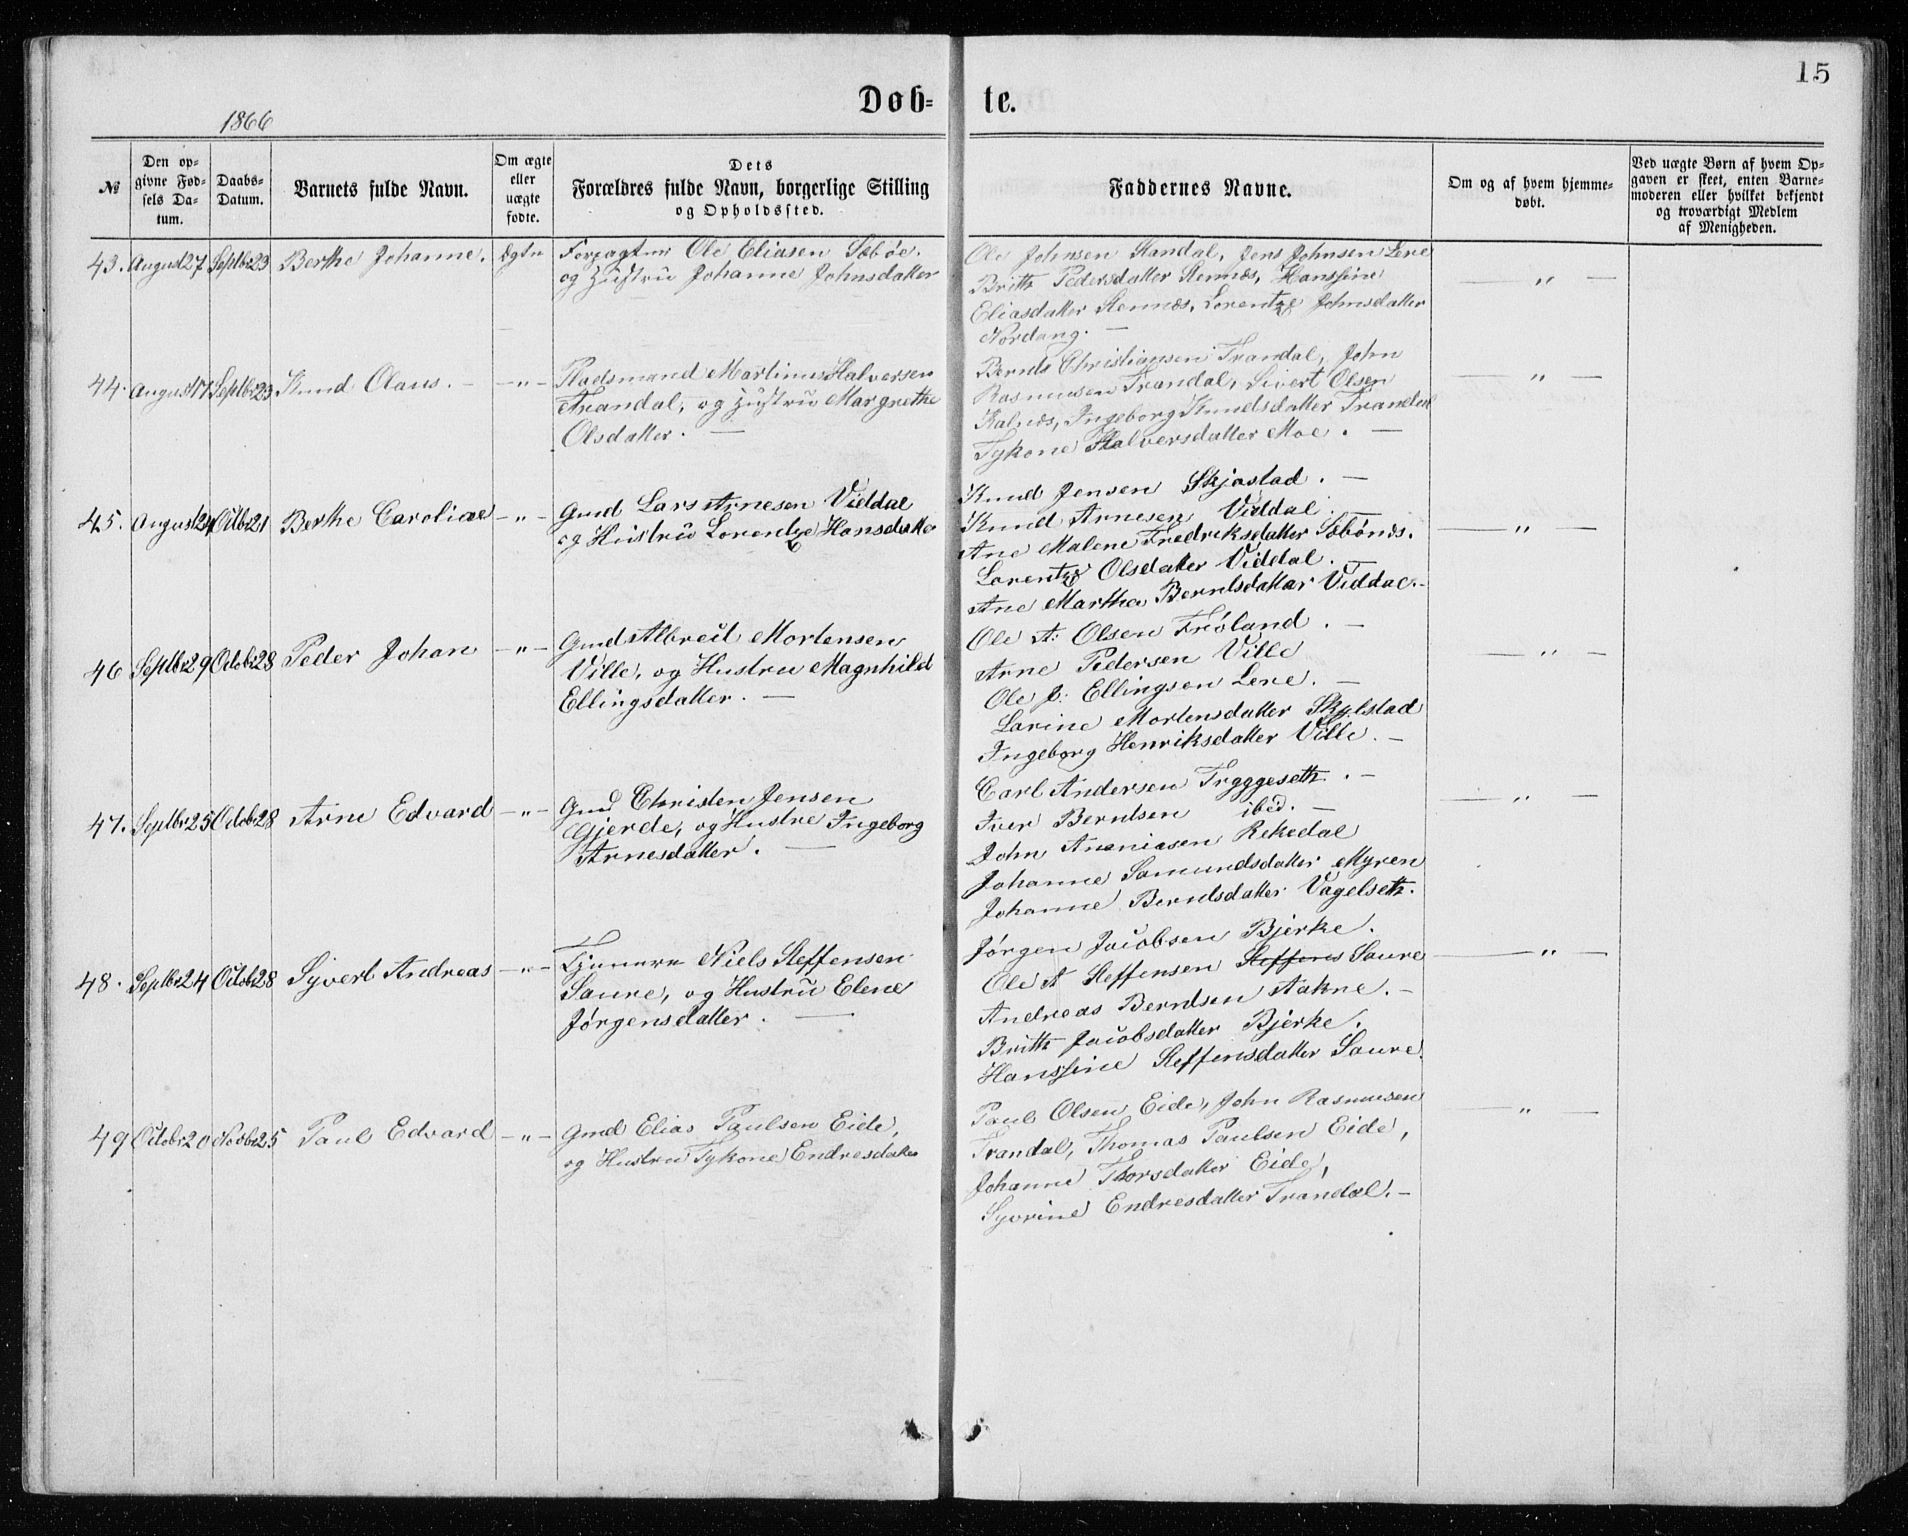 15
1866
Døb- te.
№
Den op-
givne Fød-
sels Da-
tum.
Daabs-
Datum.
Barnets fulde Navn.
Om ægte
eller
uægte
fødte.
Dets
Forældres fulde Navn, borgerlige Stilling
og Opholdssted.
Faddernes Navne.
Om og af hvem hjemme-
døbt.
Ved uægte Børn af hvem Op-
gaven er skeet, enten Barne-
moderen eller hvilket bekjendt
og troværdigt Medlem
af Menigheden.
43. August 27 Septbr 23 Berthe Johanne. Ægte
Forpagter Ole Eliasen Sæbøe.
og Hustru Johanne Johnsdatter
Ole Johnsen Standal, Jens Johnsen Lere
Brith Pedersdatter Stennæs, Hanssine
Eliasdatter Stennæs, Lorentze Johnsdatter
Nordang. —
— " —
44. August 17 Septbr 23 Knud Olaus. — — " —
Pladsmand Martinus Halversen
Trandal, og Hustru Margrethe
Olsdatter. —
Bernts Christiansen Trandal, John
Rasmusen Trandal, Sivert Olsen
Kalnæs, Ingeborg Knudsdatter Trandal
Tykone Halversdatter Moe. —
— " —
45. August 24 Octbr 21 Berthe Caroline — " —
Gmd Lars Arnesen Viddal
og Hustru Lorentze Hansdatter
Knud Jensen Skjastad. —
Knud Arnesen Viddal.
Ane Malene Fredriksdatter Sæbønes.
Lorentze Olsdatter Viddal. —
Ane Martha Berntsdatter Viddal. —
— " —
46 Septbr 29 Octob 28 Peder Johan — " —
Gmd Albrect Mortensen
Ville, og Hustru Magnhild
Ellingsdatter. —
Ole A: Olsen Frøland. —
Arne Pedersen Ville
Ole J: Ellingsen Lere. —
Larine Mortensdatter Skylstad
Ingeborg Henriksdatter Ville. —
— " —
47. Septbr 25 Octob 28 Arne Edvard — " —
Gmd Christen Jensen
Gjerde, og Hustru Ingeborg
Arnesdatter. —
Carl Andersen Tryggeseth. —
Iver Berntsen ibid. —
John Ananiasen Rekedal
Johanne Samundsdatter Myren
Johanne Berntsdatter Vagelseth.
— " —
48. Septbr 24 Octob 28 Syvert Andreas — " —
Niels Steffensen
Saure, og Hustru Elene
Jørgensdatter. —
Jørgen Jacobsen Bjerke.
Ole A Steffensen Steffens Saure
Andreas Berntsen Aakne. —
Brith Jacobsdatter Bjerke.
Hanssine Steffensdatter Saure.
— " —
49 Octobr 20 Novbr 25 Paul Edvard — " —
Gmd Elias Paulsen Eide,
og Hustru Tykone Endresdatter
Paul Olsen Eide, John Rasmusen
Trandal, Thomas Paulsen Eide,
Johanne Thorsdatter Eide,
Syvrine Endresdatter Trandal. —
— " —